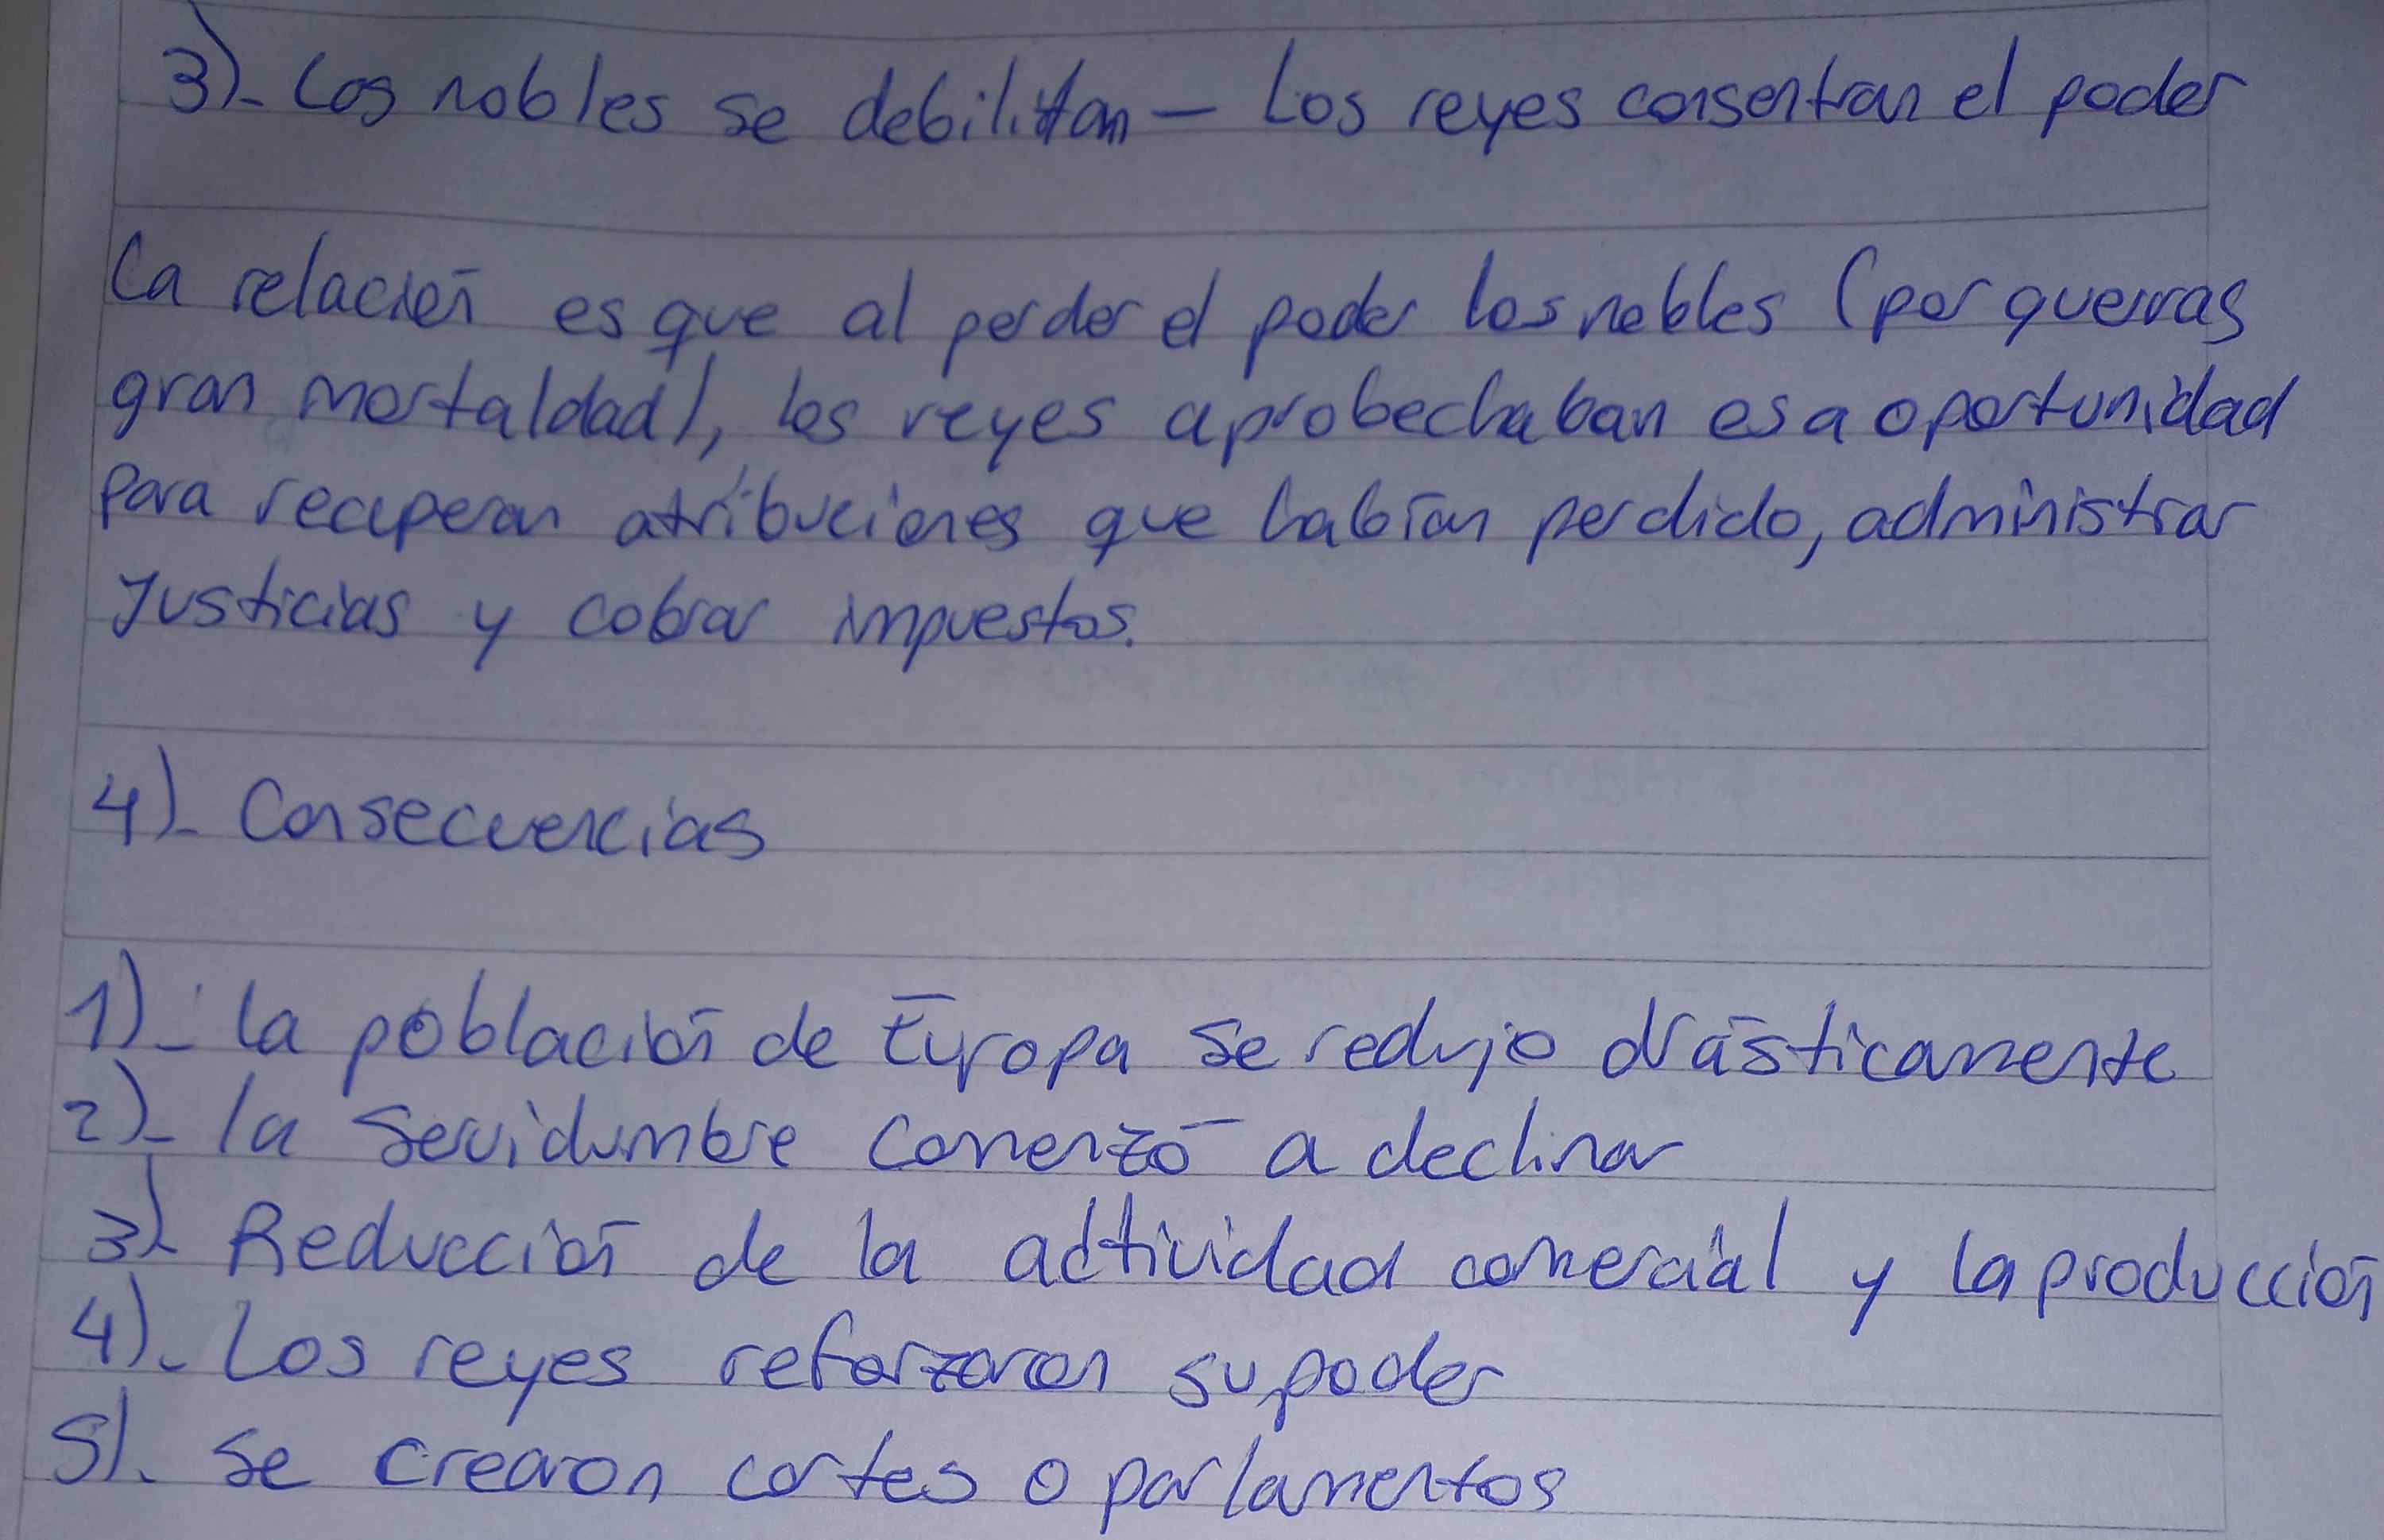 3)- Los nobles se debilitan - Los reyes consentran el poder
La relación es que al perder el poder los nobles (por guerras
gran mortaldad), los reyes aprobechaban esa oportunidad
para recuperan atribuciones que habían perdido, administrar
Justicias y cobrar impuestos.
4)- Consecuencias
1)- La población de Europa se redujo drásticamente
2)- la servidumbre comenzó a declinar
3)- Reducción de la actividad comercial y la producción
4)- Los reyes reforzaron su poder
5)- Se crearon cortes o parlamentos